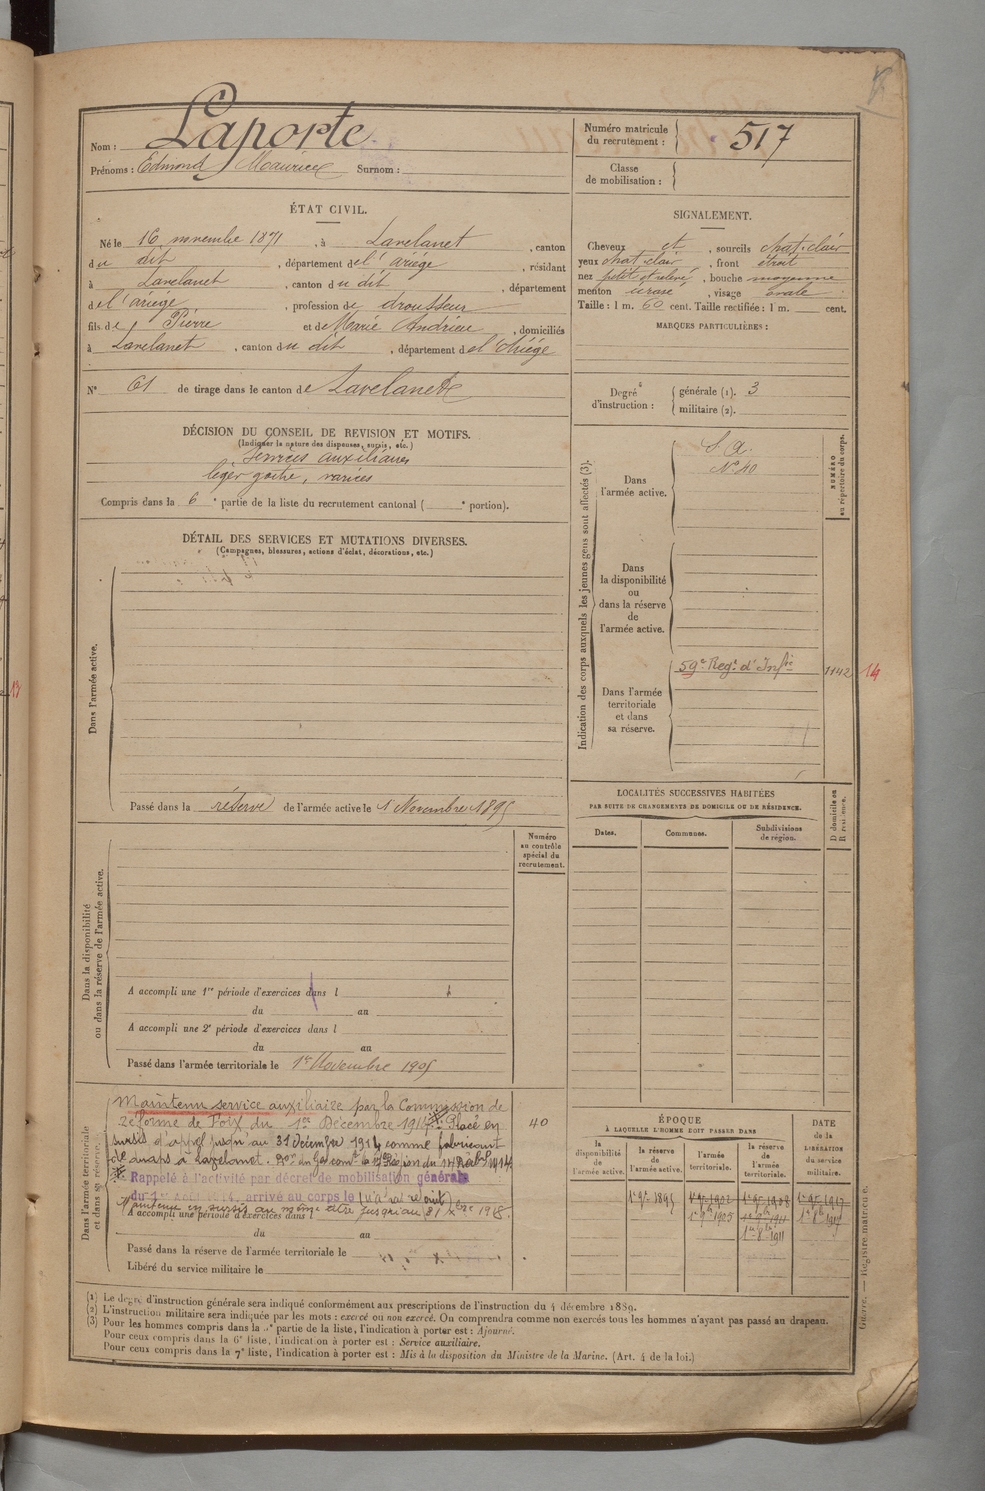 Nom : Laporte
Prénoms : Edmond Maurice Surnom :
Numéro matricule du recrutement : 517
Classe de mobilisation :
ÉTAT CIVIL.
Né le 16 novembre 1871, à Lavelanet, canton
du dit, département de l'ariège, résidant
à Lavelanet, canton du dit, département
de l'ariège, profession de drousseur
fils de Pierre et de Marie Andrieu, domiciliés
à Lavelanet, canton du dit, département de l'Ariège
N° 61 de tirage dans le canton de Lavelanet
SIGNALEMENT.
Cheveux et, sourcils chat. clair
yeux chat clair, front étroit
nez petit et relevé, bouche moyenne
menton, visage ovale
Taille : 1 m. 60 cent. Taille rectifiée : 1 m. cent.
MARQUES PARTICULIÈRES :
Degré d'instruction : générale (1). 3
militaire (2).
DÉCISION DU CONSEIL DE REVISION ET MOTIFS.
(Indiquer la nature des dispenses, sursis, etc.)
Services auxiliaires
léger goitre, varices
Compris dans la 6e partie de la liste du recrutement cantonal ( e portion).
DÉTAIL DES SERVICES ET MUTATIONS DIVERSES.
(Campagnes, blessures, actions d'éclat, décorations, etc.)
Dans l'armée active.
Passé dans la réserve de l'armée active le 1 Novembre 1895
Indication des corps auxquels les jeunes gens sont affectés (3).
NUMÉRO au répertoire du corps.
Dans l'armée active.
S. A.
N° 40
Dans la disponibilité ou dans la réserve de l'armée active.
Dans l'armée territoriale et dans sa réserve.
59e Regt d'Infie 1142 14
LOCALITÉS SUCCESSIVES HABITÉES
PAR SUITE DE CHANGEMENTS DE DOMICILE OU DE RÉSIDENCE.
Dates. Communes. Subdivisions de région.
D domicile ou R résidence.
Dans la disponibilité ou dans la réserve de l'armée active.
Numéro au contrôle spécial du recrutement.
A accompli une 1re période d'exercices dans l
du au
A accompli une 2e période d'exercices dans l
du au
Passé dans l'armée territoriale le 1er Novembre 1905
Dans l'armée territoriale et dans sa réserve.
Maintenu service auxiliaire par la Commission de 40
réforme de Foix du 1er Décembre 1914. Placé en
sursis d'appel jusqu'au 31 Décembre 1914 comme fabricant
de draps à Lavelanet.
Rappelé à l'activité par décret de mobilisation générale
du 1er Août 1914, arrivé au corps le (n'a pas rejoint)
Maintenu en sursis au même titre jusqu'au 31 Xbre 1915.
A accompli une période d'exercices dans l
du au
Passé dans la réserve de l'armée territoriale le
Libéré du service militaire le
ÉPOQUE
À LAQUELLE L'HOMME DOIT PASSER DANS
la disponibilité de l'armée active. la réserve de l'armée active. l'armée territoriale. la réserve de l'armée territoriale. DATE de la LIBÉRATION du service militaire.
1er 9bre 1895 1er 9bre 1902 1er 9bre 1908 1er 9bre 1917
1er 9bre 1905 1er 9bre 1911 1er 8bre 1917
1er 8bre 1911
(1) Le degré d'instruction générale sera indiqué conformément aux prescriptions de l'instruction du 4 décembre 1889.
(2) L'instruction militaire sera indiquée par les mots : exercé ou non exercé. On comprendra comme non exercés tous les hommes n'ayant pas passé au drapeau.
(3) Pour les hommes compris dans la e partie de la liste, l'indication à porter est : Ajourné.
Pour ceux compris dans la 6e liste, l'indication à porter est : Service auxiliaire.
Pour ceux compris dans la 7e liste, l'indication à porter est : Mis à la disposition du Ministre de la Marine. (Art. 4 de la loi.)
Guerre. — Registre matricule.